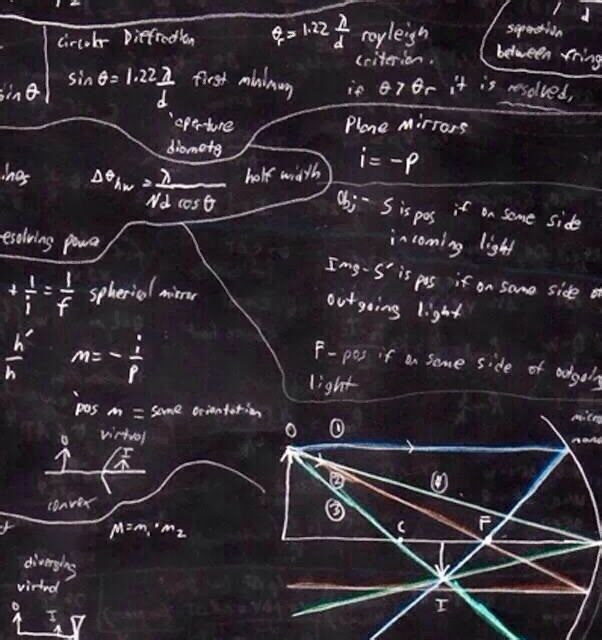 circular Diffraction
sin θ = 1.22 λ/d first minimum
aperture
diameter
θr = 1.22 λ/d rayleigh
criterion.
if θ > θr it is resolved.
d
separation
between fring
sin θ
Plane Mirrors
i = -p
ines
Δθhw = λ/(Nd cos θ) half width
Obj - S is pos if on same side
incoming light
Img - S' is pos if on same side o
outgoing light
F - pos if on same side of outgoing
light
esolving power
+ 1/i = 1/f spherical mirror
h'/h
m = - i/p
pos m = same orientation
O
virtual
I
convex
M = m1 · m2
diverging
virtual
O
I
O
1
2
3
4
C
F
I